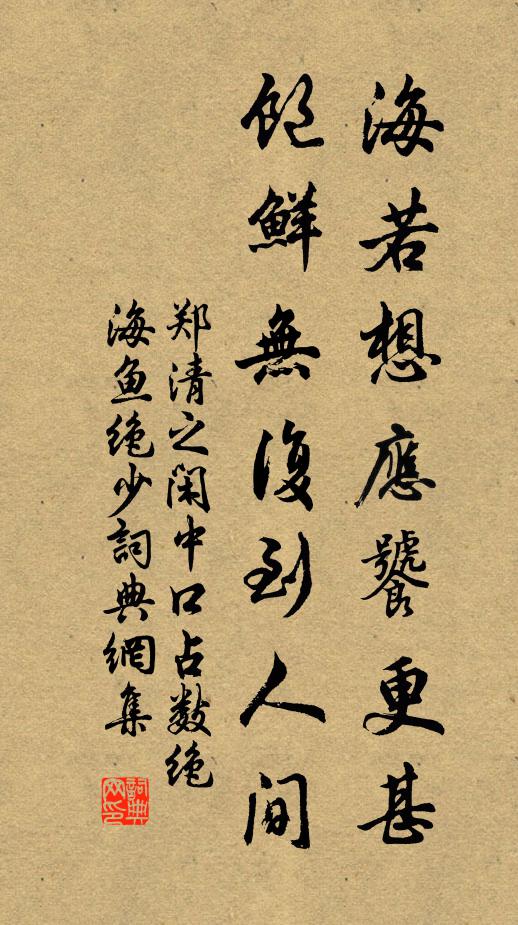 海若想應饕更甚
飽鮮無復到人間
郑清之闲中口占数绝
海鱼绝少詞典網集
詞典網印